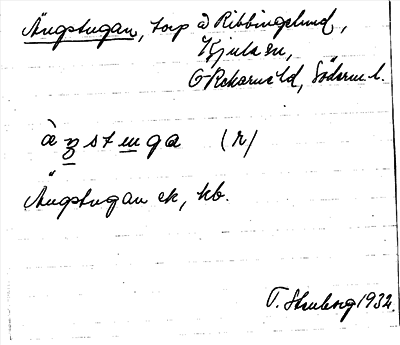 Ängstugan, torp å Ribbingelund,
Kjula sn,
Ö Rekarne hd, Söderm l.
à ŋ st u ga (n)
Ängstugan ek, kb.
T. Stenberg 1932